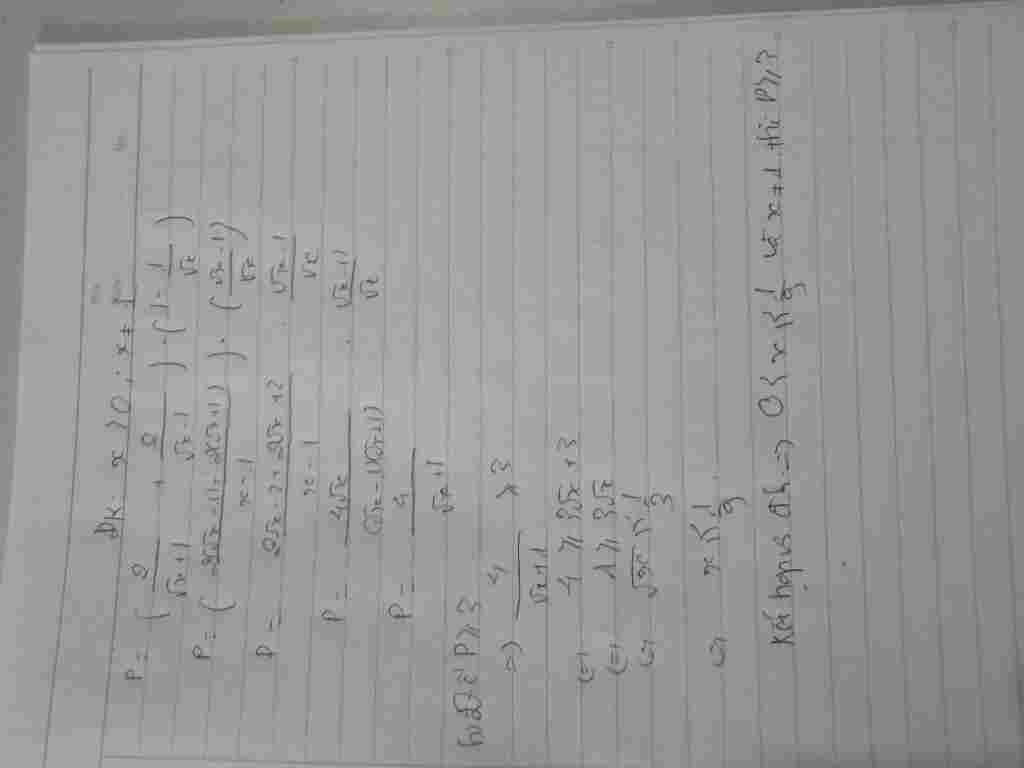 ĐK: x > 0 ; x ≠ 1
P = ( 2/(√x+1) + 2/(√x-1) ) . ( 1 - 1/√x )
P = ( (2(√x-1) + 2(√x+1))/(x-1) ) . ( (√x-1)/√x )
P = (2√x - 2 + 2√x + 2)/(x-1) . (√x-1)/√x
P = 4√x/((√x-1)(√x+1)) . (√x-1)/√x
P = 4/(√x+1)
Để P ≥ 3
=> 4/(√x+1) ≥ 3
<=> 4 ≥ 3√x + 3
<=> 1 ≥ 3√x
<=> √x ≤ 1/3
<=> x ≤ 1/9
Kết hợp đk => 0 < x ≤ 1/9 và x ≠ 1 thì P ≥ 3